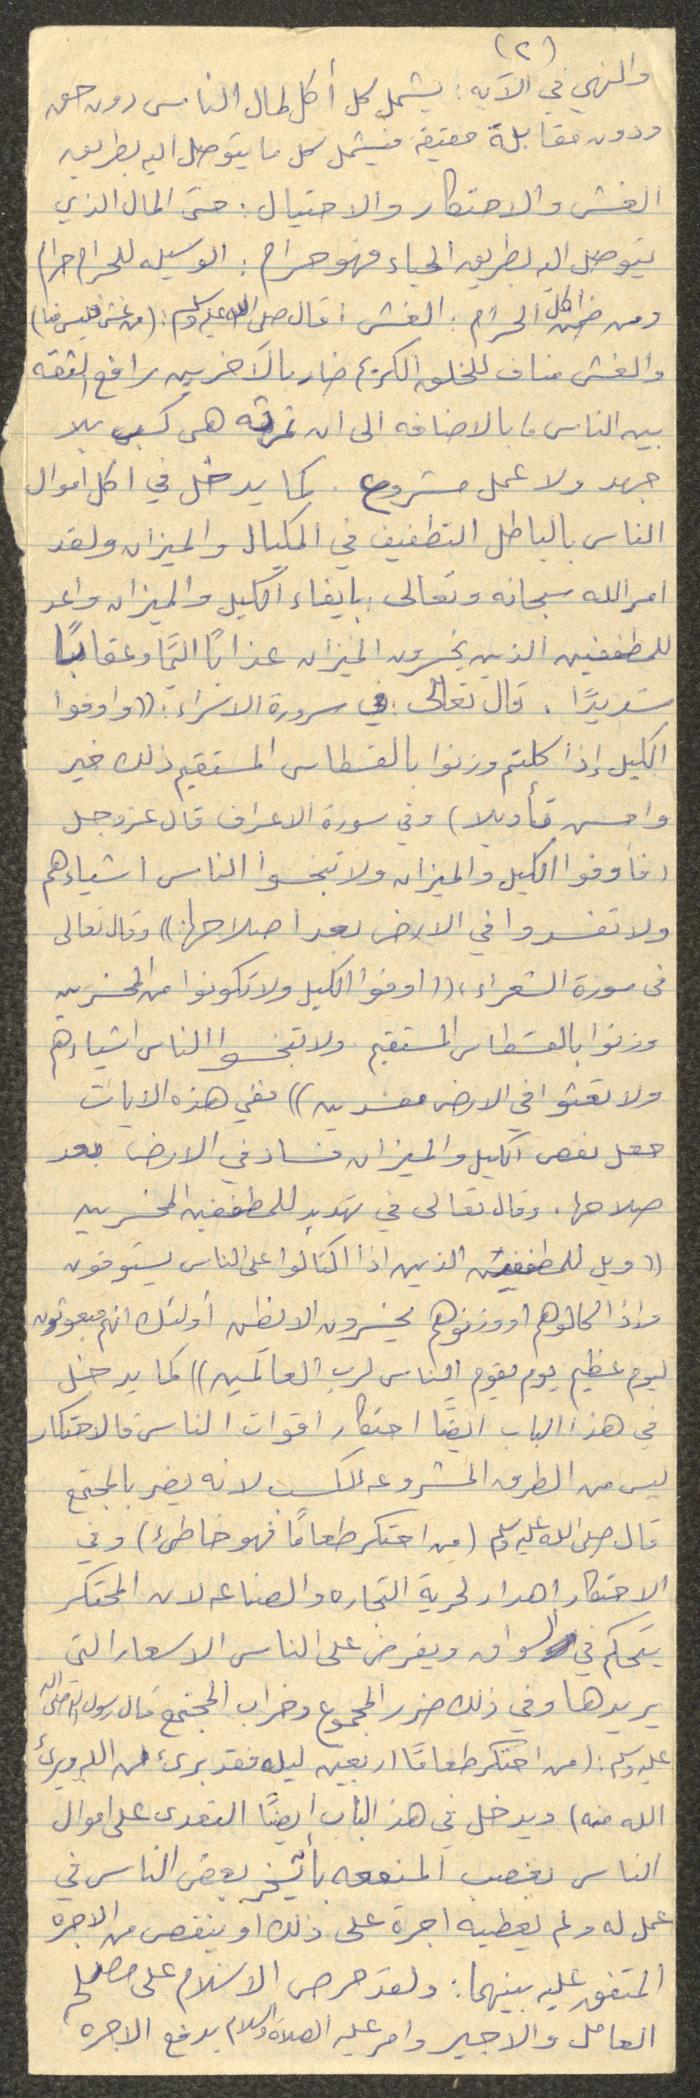 (٢)
والنهي في الآيه: يشمل كل أكل لمال الناس دون حق
ودون مقابلة حقيقة فيشمل كل ما يتوصل اليه بطريق
الغش والاحتكار والاحتيال: حتى المال الذي
يتوصل اليه بطريق الحياء فهو حرام: الوسيله للحرام حرام
ومن اكل الحرام: الغش: قال صلى الله عليه وسلم: (من غش فليس منا)
والغش مناف للخلق الكريم ضار بالآخرين رافع لثقه
بين الناس بالاضافه الى ان ثمرته هي كسب بلا
جهد ولا عمل مشروع. كما يدخل في اكل اموال
الناس بالباطل التطفيف في المكيال والميزان ولقد
امر الله سبحانه وتعالى بايفاء الكيل والميزان واعد
للمطففين الذين يخسرون الميزان عذابًا اليمًا وعقابًا
شديدًا. قال تعالى في سورة الاسراء: ((واوفوا
الكيل إذا كلتم وزنوا بالقسطاس المستقيم ذلك خير
واحسن تأويلا) وفي سورة الاعراف قال عز وجل
(فأوفوا الكيل والميزان ولا تبخسوا الناس اشياءهم
ولا تفسدوا في الارض بعد اصلاحها)) وقال تعالى
في سورة الشعراء، ((اوفوا الكيل ولا تكونوا من المخسرين
وزنوا بالقسطاس المستقيم ولا تبخسوا الناس اشياءهم
ولا تعثوا في الارض مفسدين)) ففي هذه الايات
جعل نقص الكيل والميزان فساد في الارض بعد
صلاحها. وقال تعالى في تهديد للمطففين المخسرين
((ويل للمطففين الذين اذا اكتالوا على الناس يستوفون
واذا كالوهم او وزنوهم يخسرون الا يظن أولئك انهم مبعوثون
ليوم عظيم يوم يقوم الناس لرب العالمين)) كما يدخل
في هذا الباب ايضًا احتكار اقوات الناس فالاحتكار
ليس من الطرق المشروعه للكسب لانه يضر بالمجتمع
قال صلى الله عليه وسلم (من احتكر طعامًا فهو خاطئ) وفي
الاحتكار اهدار لحرية التجاره والصناعه لان المحتكر
يتحكم في السواق ويفرض على الناس الاسعار التي
يريدها وفي ذلك ضرر المجموع وخراب المجتمع قال رسول الله صلى الله
عليه وسلم: (من احتكر طعامًا اربعين ليله فقد برئ من الله وبرئ
الله منه) ويدخل في هذ الباب ايضًا التعدى على اموال
الناس بغصب المنفعه بأن يسخر بعض الناس في
عمل له ولم يعطيه اجرة على ذلك او ينقص من الاجره
المتفق عليه بينهما: ولقد حرص الاسلام على مصالح
العامل والاجير وامر عليه الصلاة والسلام بدفع الاجره